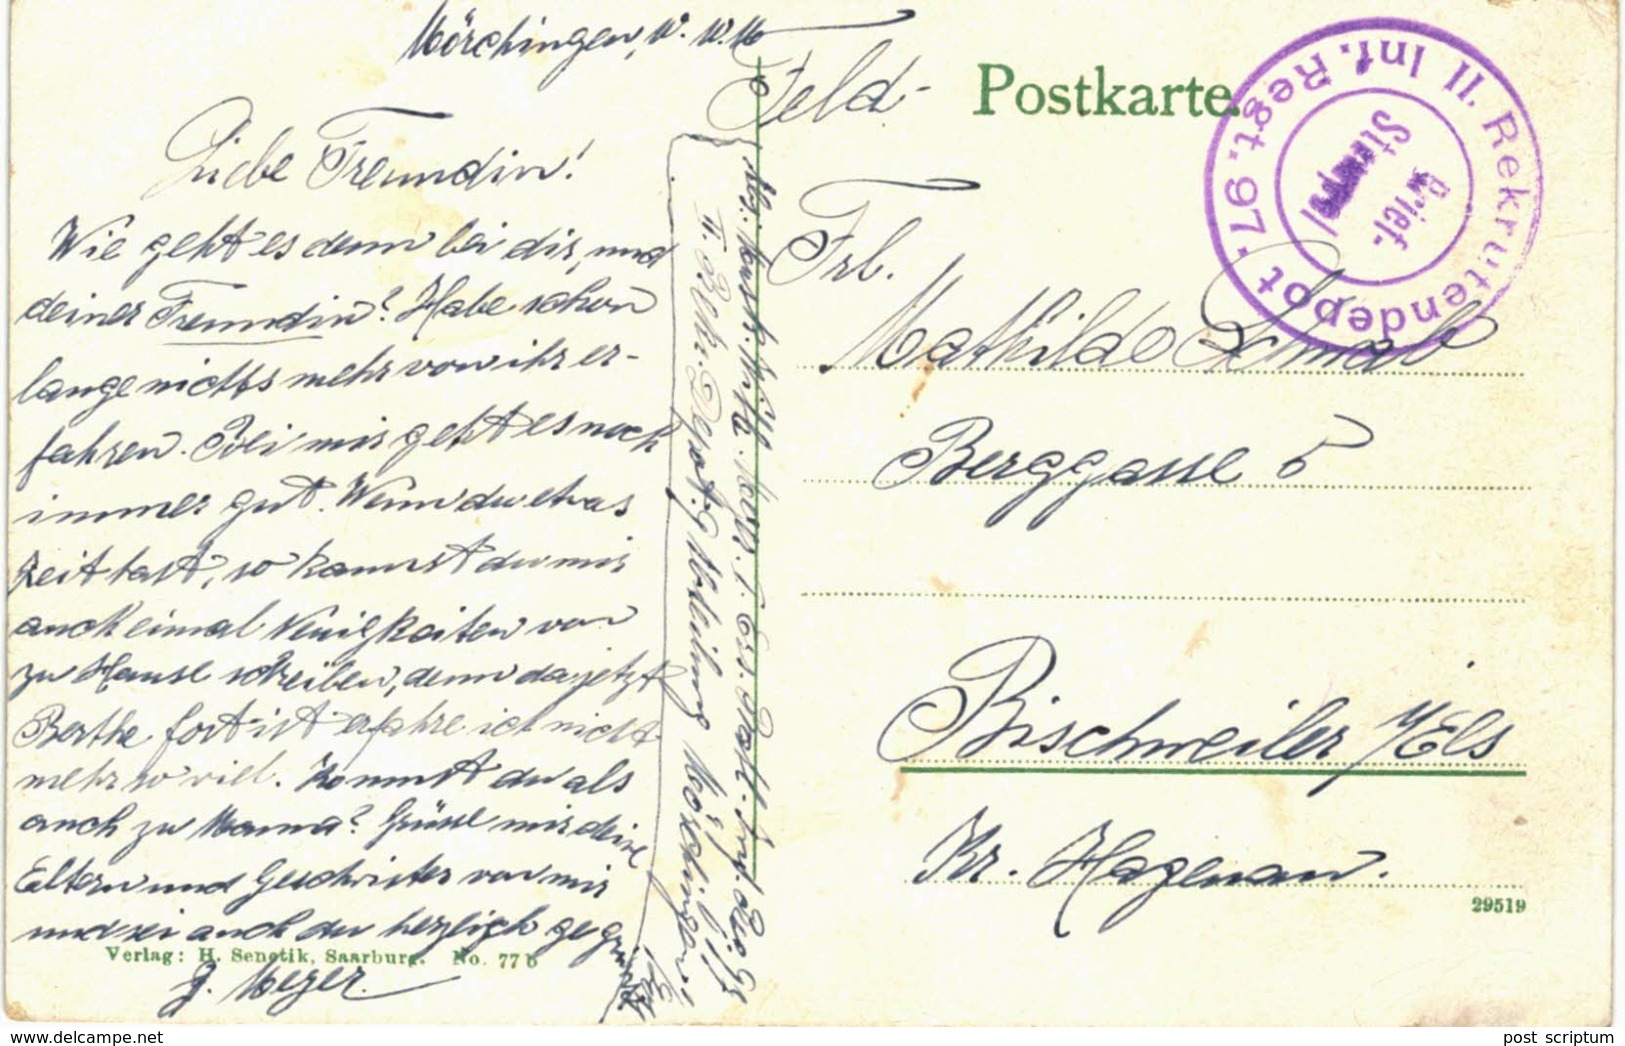 Mörchingen, 10. 10. 16
Liebe Freundin!
Wie geht es denn bei dir, und
deiner Freundin? Habe schon
lange nichts mehr von ihr er-
fahren. Bei mir geht es noch
immer gut. Wenn du etwas
Zeit hast, so kannst du mir
auch einmal Neuigkeiten von
zu Hause schreiben, denn da jetzt
Berthe fort ist erfahre ich nicht
mehr so viel. Kommst du als
auch zu Mama? Grüsse mir deine
Eltern und Geschwister von mir
und sei auch du herzlich gegrüsst
J. Meyer
Verlag: H. Senetik, Saarburg. No. 77b
Inf. Regt. 97
II. Rek. Depot. Abteilung Mörchingen i/L
Feld-
Postkarte.
II. Rekrutendepot · Inf. Regt. 97 ·
Brief.
Stempel
Frl.
Mathilde Schwab
Berggasse 5
Bischweiler i/Els
Kr. Hagenau.
29519
post scriptum
www.delcampe.net